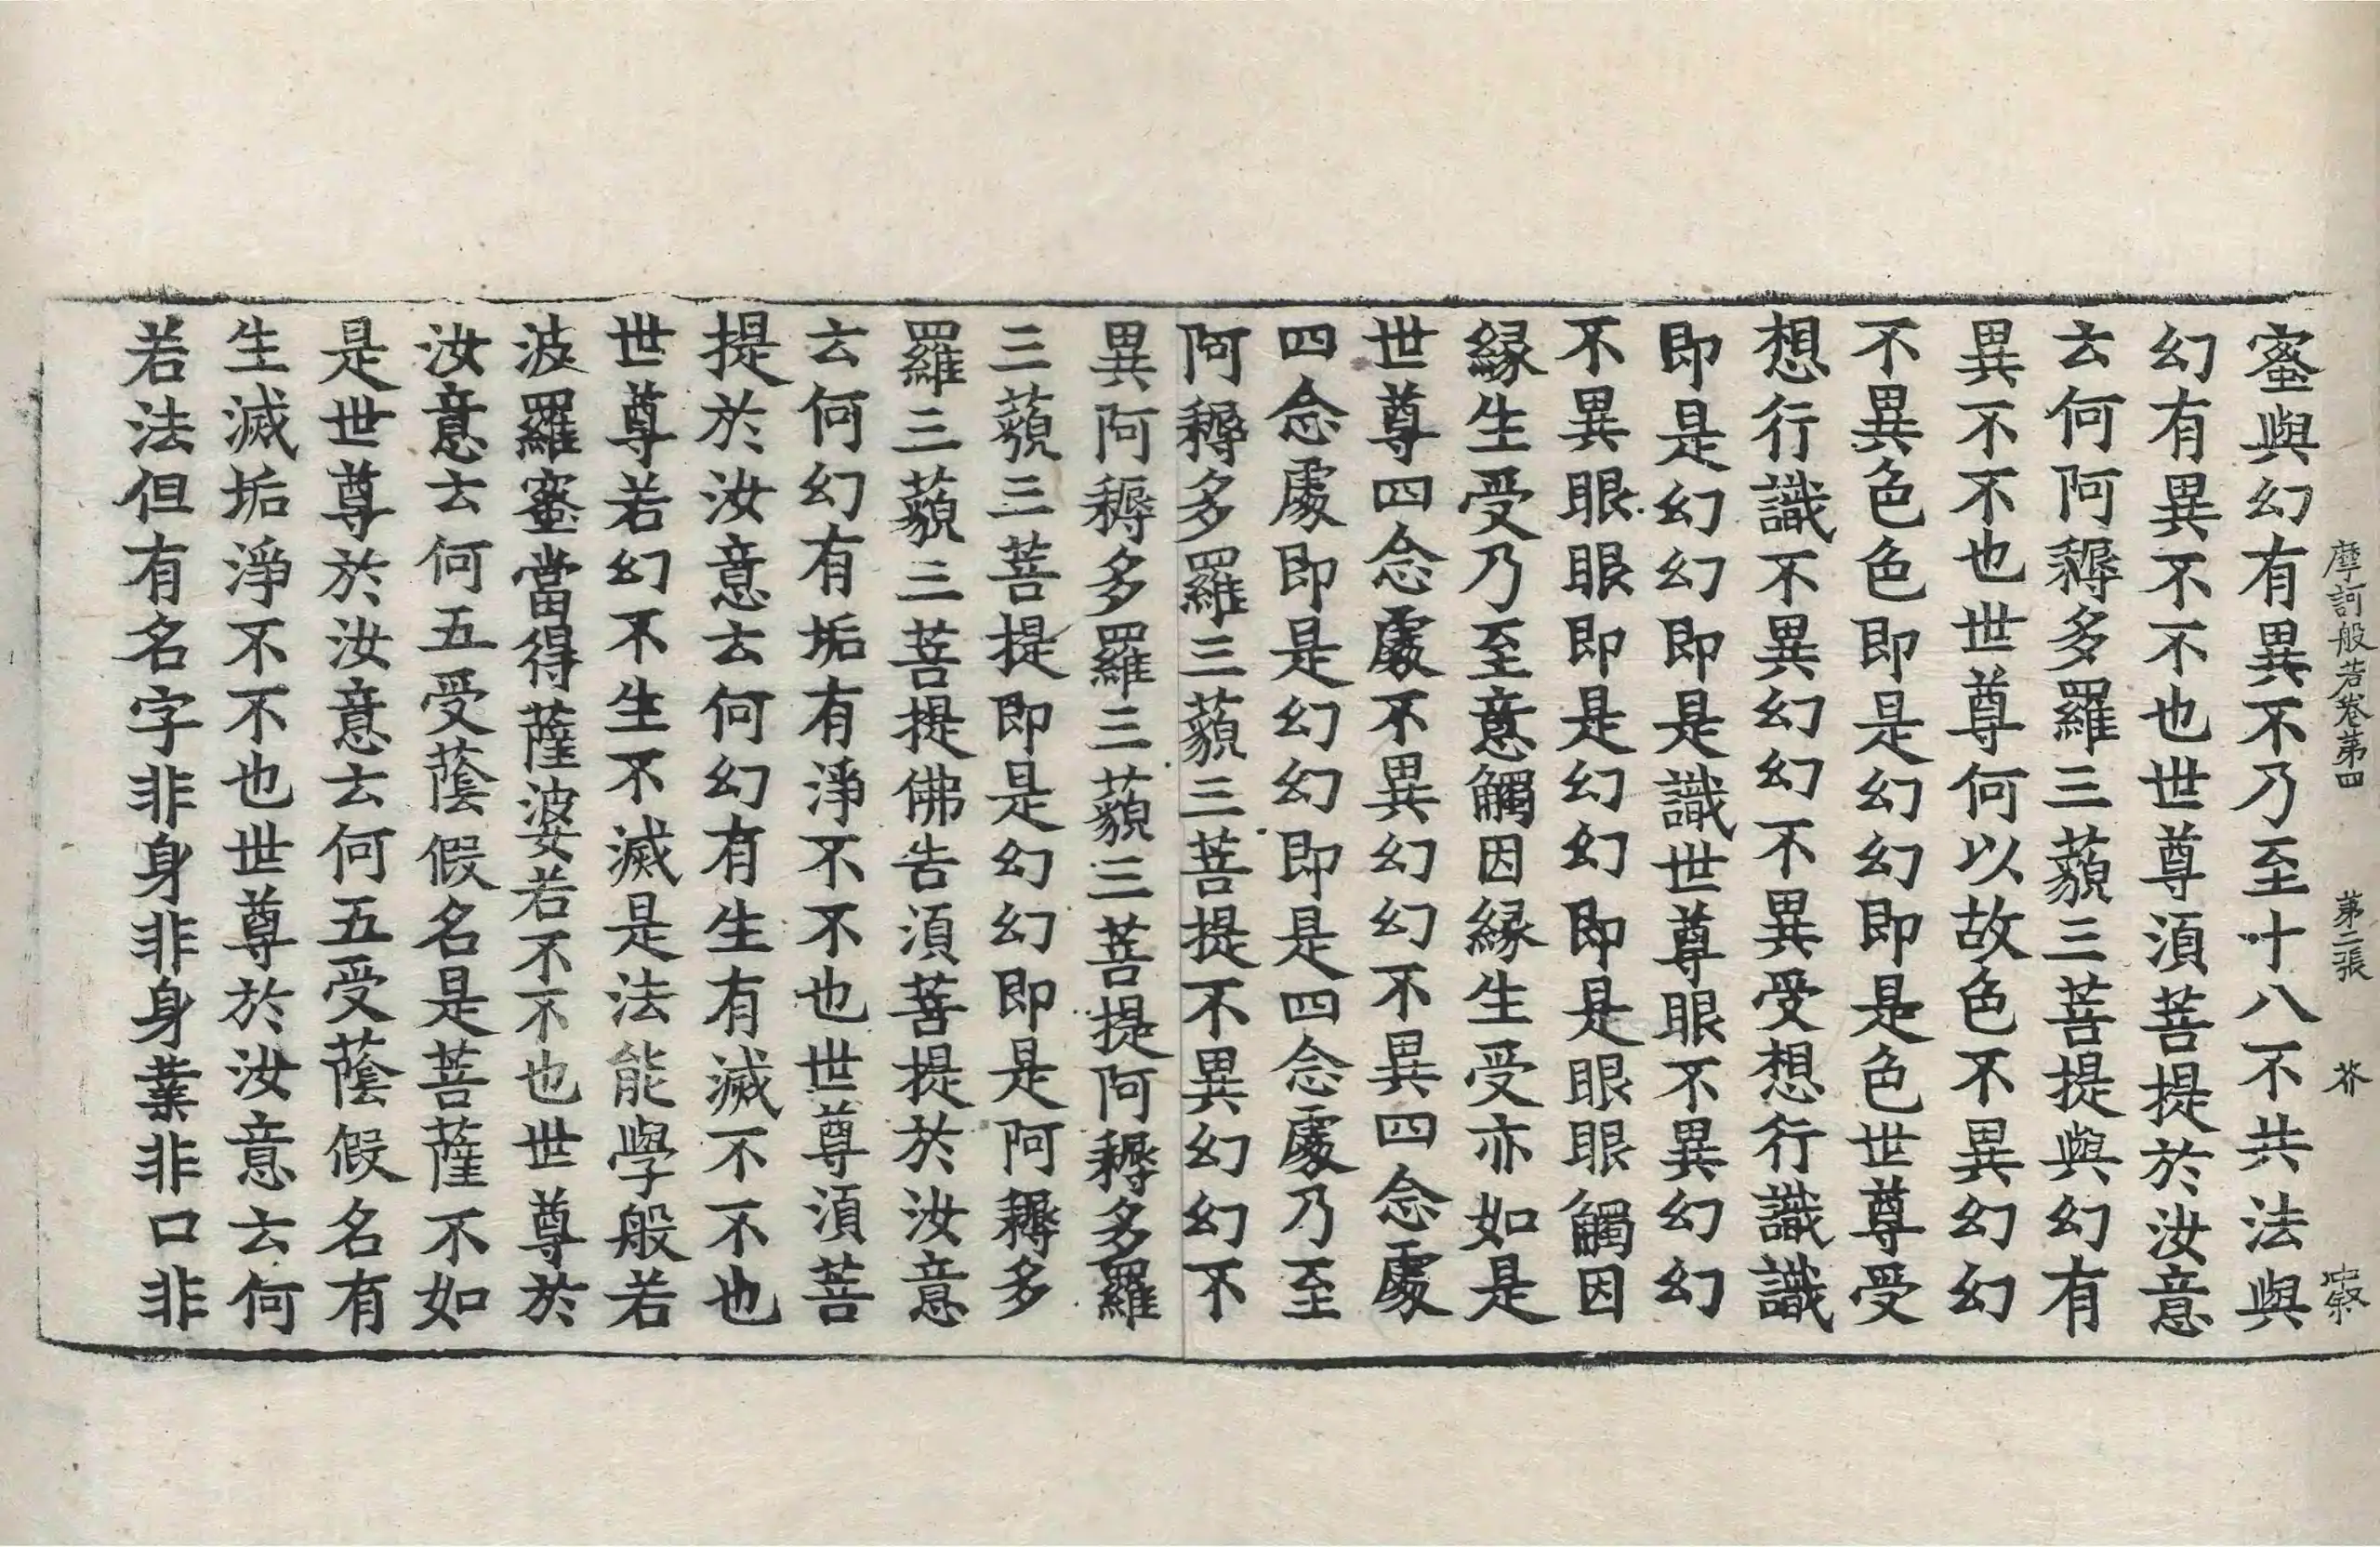 摩訶般若卷第四 第二張 芥
蜜與幻有異不乃至十八不共法與
幻有異不不也世尊須菩提於汝意
云何阿耨多羅三藐三菩提與幻有
異不不也世尊何以故色不異幻幻
不異色色即是幻幻即是色世尊受
想行識不異幻幻不異受想行識識
即是幻幻即是識世尊眼不異幻幻
不異眼眼即是幻幻即是眼眼觸因
緣生受乃至意觸因緣生受亦如是
世尊四念處不異幻幻不異四念處
四念處即是幻幻即是四念處乃至
阿耨多羅三藐三菩提不異幻幻不
異阿耨多羅三藐三菩提阿耨多羅
三藐三菩提即是幻幻即是阿耨多
羅三藐三菩提佛告須菩提於汝意
云何幻有垢有淨不不也世尊須菩
提於汝意云何幻有生有滅不不也
世尊若幻不生不滅是法能學般若
波羅蜜當得薩婆若不不也世尊於
汝意云何五受蔭假名是菩薩不如
是世尊於汝意云何五受蔭假名有
生滅垢淨不不也世尊於汝意云何
若法但有名字非身非身業非口非